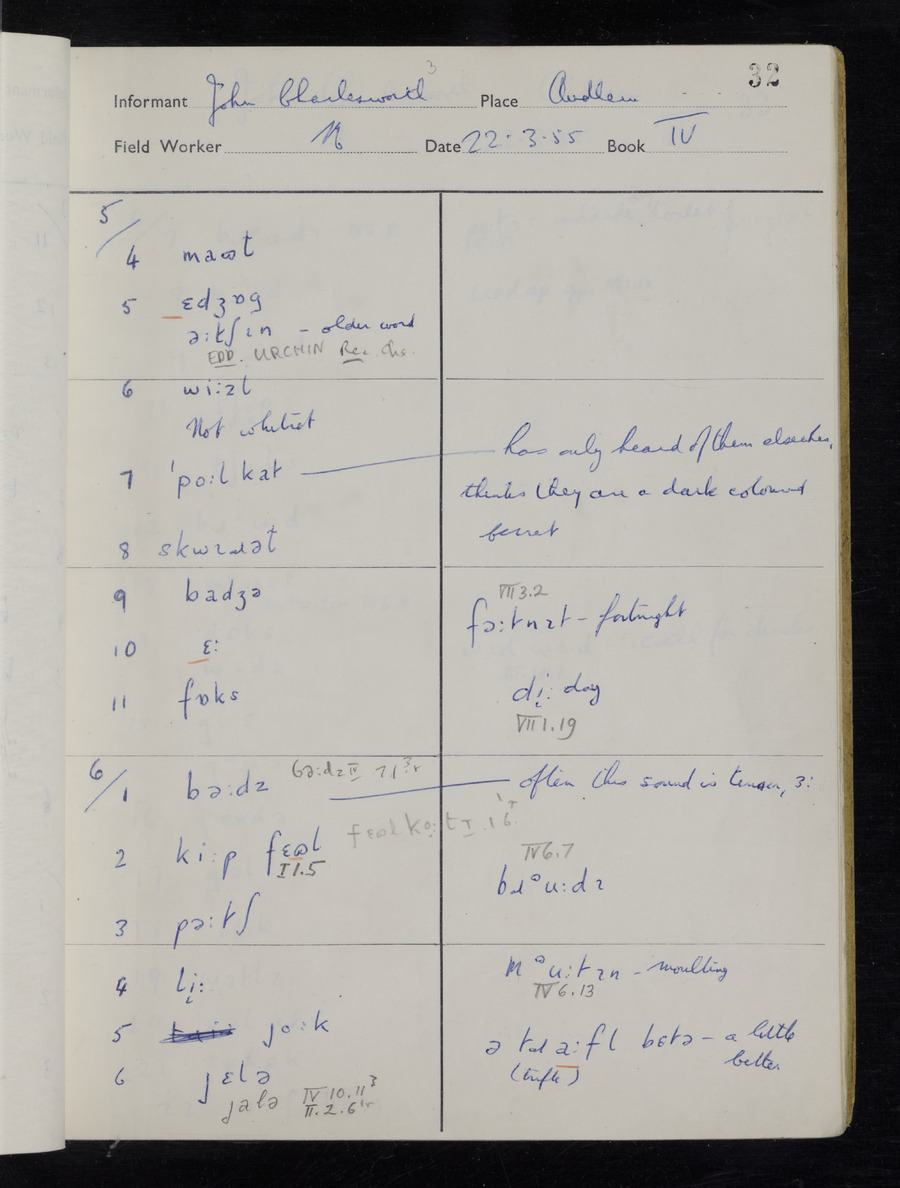 32
Informant John Charlesworth 3 Place Audlem
Field Worker Date 22.3.55 Book IV
5/
4 maɷt
5 ɛdʒɒg
ə:tʃɪn – older word
EDD. URCHIN Rec. Chs.
6 wi:zl
Not whitret
7 'po:lkat
has only heard of them elsewhere,
thinks they are a dark coloured
ferret
8 skwɪɹət
9 badʒə
10 ɛ:
11 fɒks
VII 3.2
fə:tnɪt – fortnight
di̜: day
VII 1.19
6/
1 bə:dz bə:dz IV 7.1
often this sound is tenser, ɜ:
2 ki:p fɛɷl
I 1.5
fɛɷlko:t I.1.6
3 pə:tʃ
IV 6.7
bɹᵊu:dɪ
4 li̜:
5 jo:k
6 jɛlə
jalə IV 10.11
II.2.6
mᵊu:tɪn – moulting
IV 6.13
ə tɹa:fl bɛtə – a little
(trifle) better